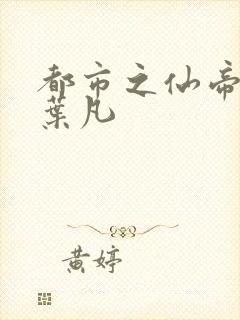 都市之仙帝
葉凡
黄婷